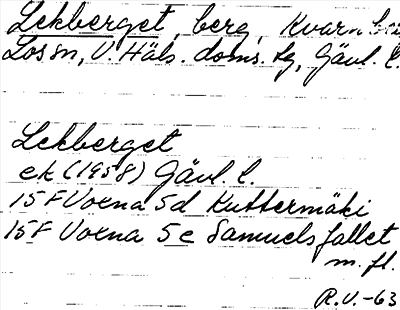 Lekberget, berg, Kvarnbe
Los sn, V. Häls. doms. sg, Gävl. l.
Lekberget
ek (1958) Gävl. l.
15 F Voxna 5d Kuttermäki
15F Voxna 5e Samuelsfallet
m. fl.
R.V.-63